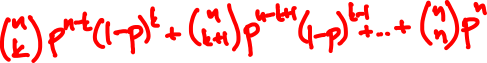 $\binom{n}{k} p^{n-k}(1-p)^{k} + \binom{n}{k+1} p^{n-k+1}(1-p)^{k-1} + \ldots + \binom{n}{n} p^{n}$